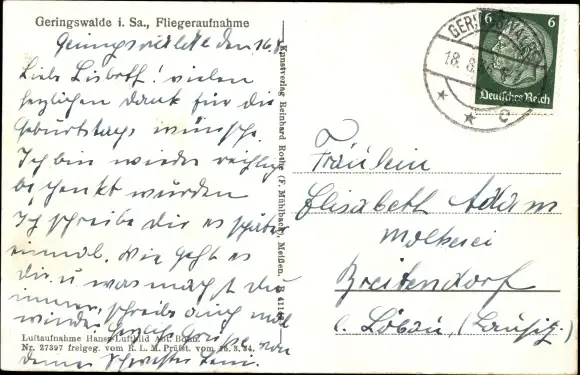 Geringswalde i. Sa., Fliegeraufnahme
Geringswalde den 16.8.
Liebe Lisbeth! vielen
herzlichen dank für die
Geburtstags wünsche.
Ich bin wieder reichlich
beschenkt wurden
Ich schreibe dir es später
einmal. Wie geht es
dir u was machst du
immer, schreibe auch mal
wieder. Herzl. Grüße von
deiner Schwester
Luftaufnahme Hansa Luftbild Abt. Bohn.
Nr. 27397 freigeg. vom R. L. M. Prüfst. vom 26. 3. 34.
Kunstverlag Reinhard Rothe (F. Mühlbach), Meißen.
GERINGSWALDE
18. 8.
c
6 6
Deutsches Reich
Fräulein
Elisabeth Adam
Molkerei
Breitendorf
b. Löbau, (Lausitz.)